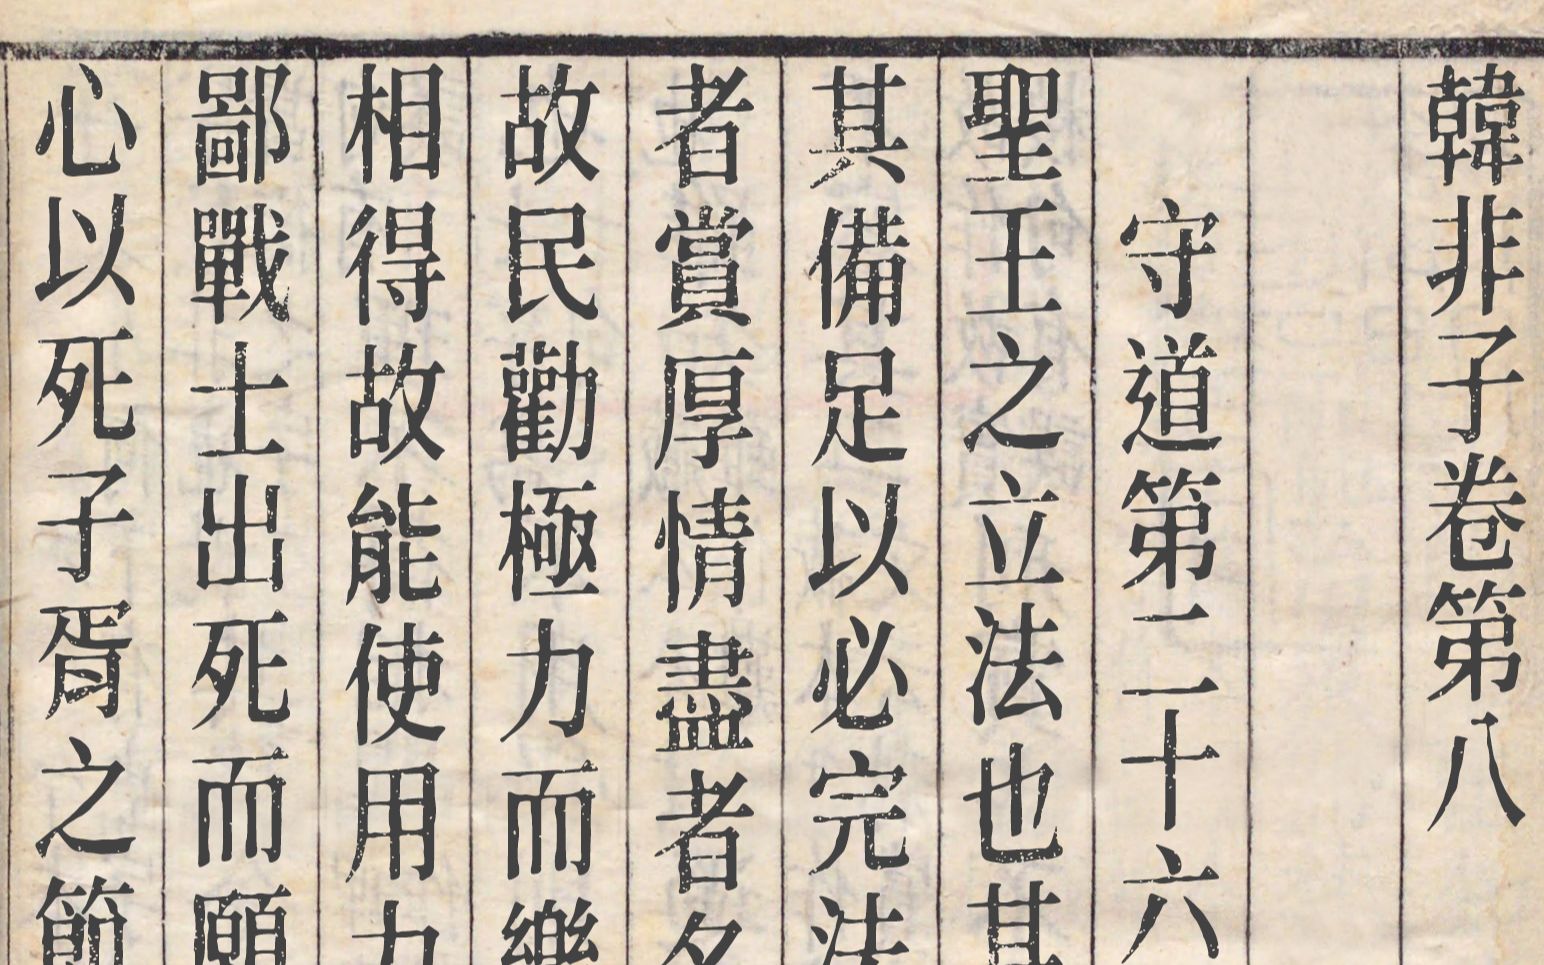 韓非子卷第八
守道第二十六
聖王之立法也其
其備足以必完法
者賞厚情盡者名
故民勸極力而樂
相得故能使用力
鄙戰士出死而願
心以死子胥之節